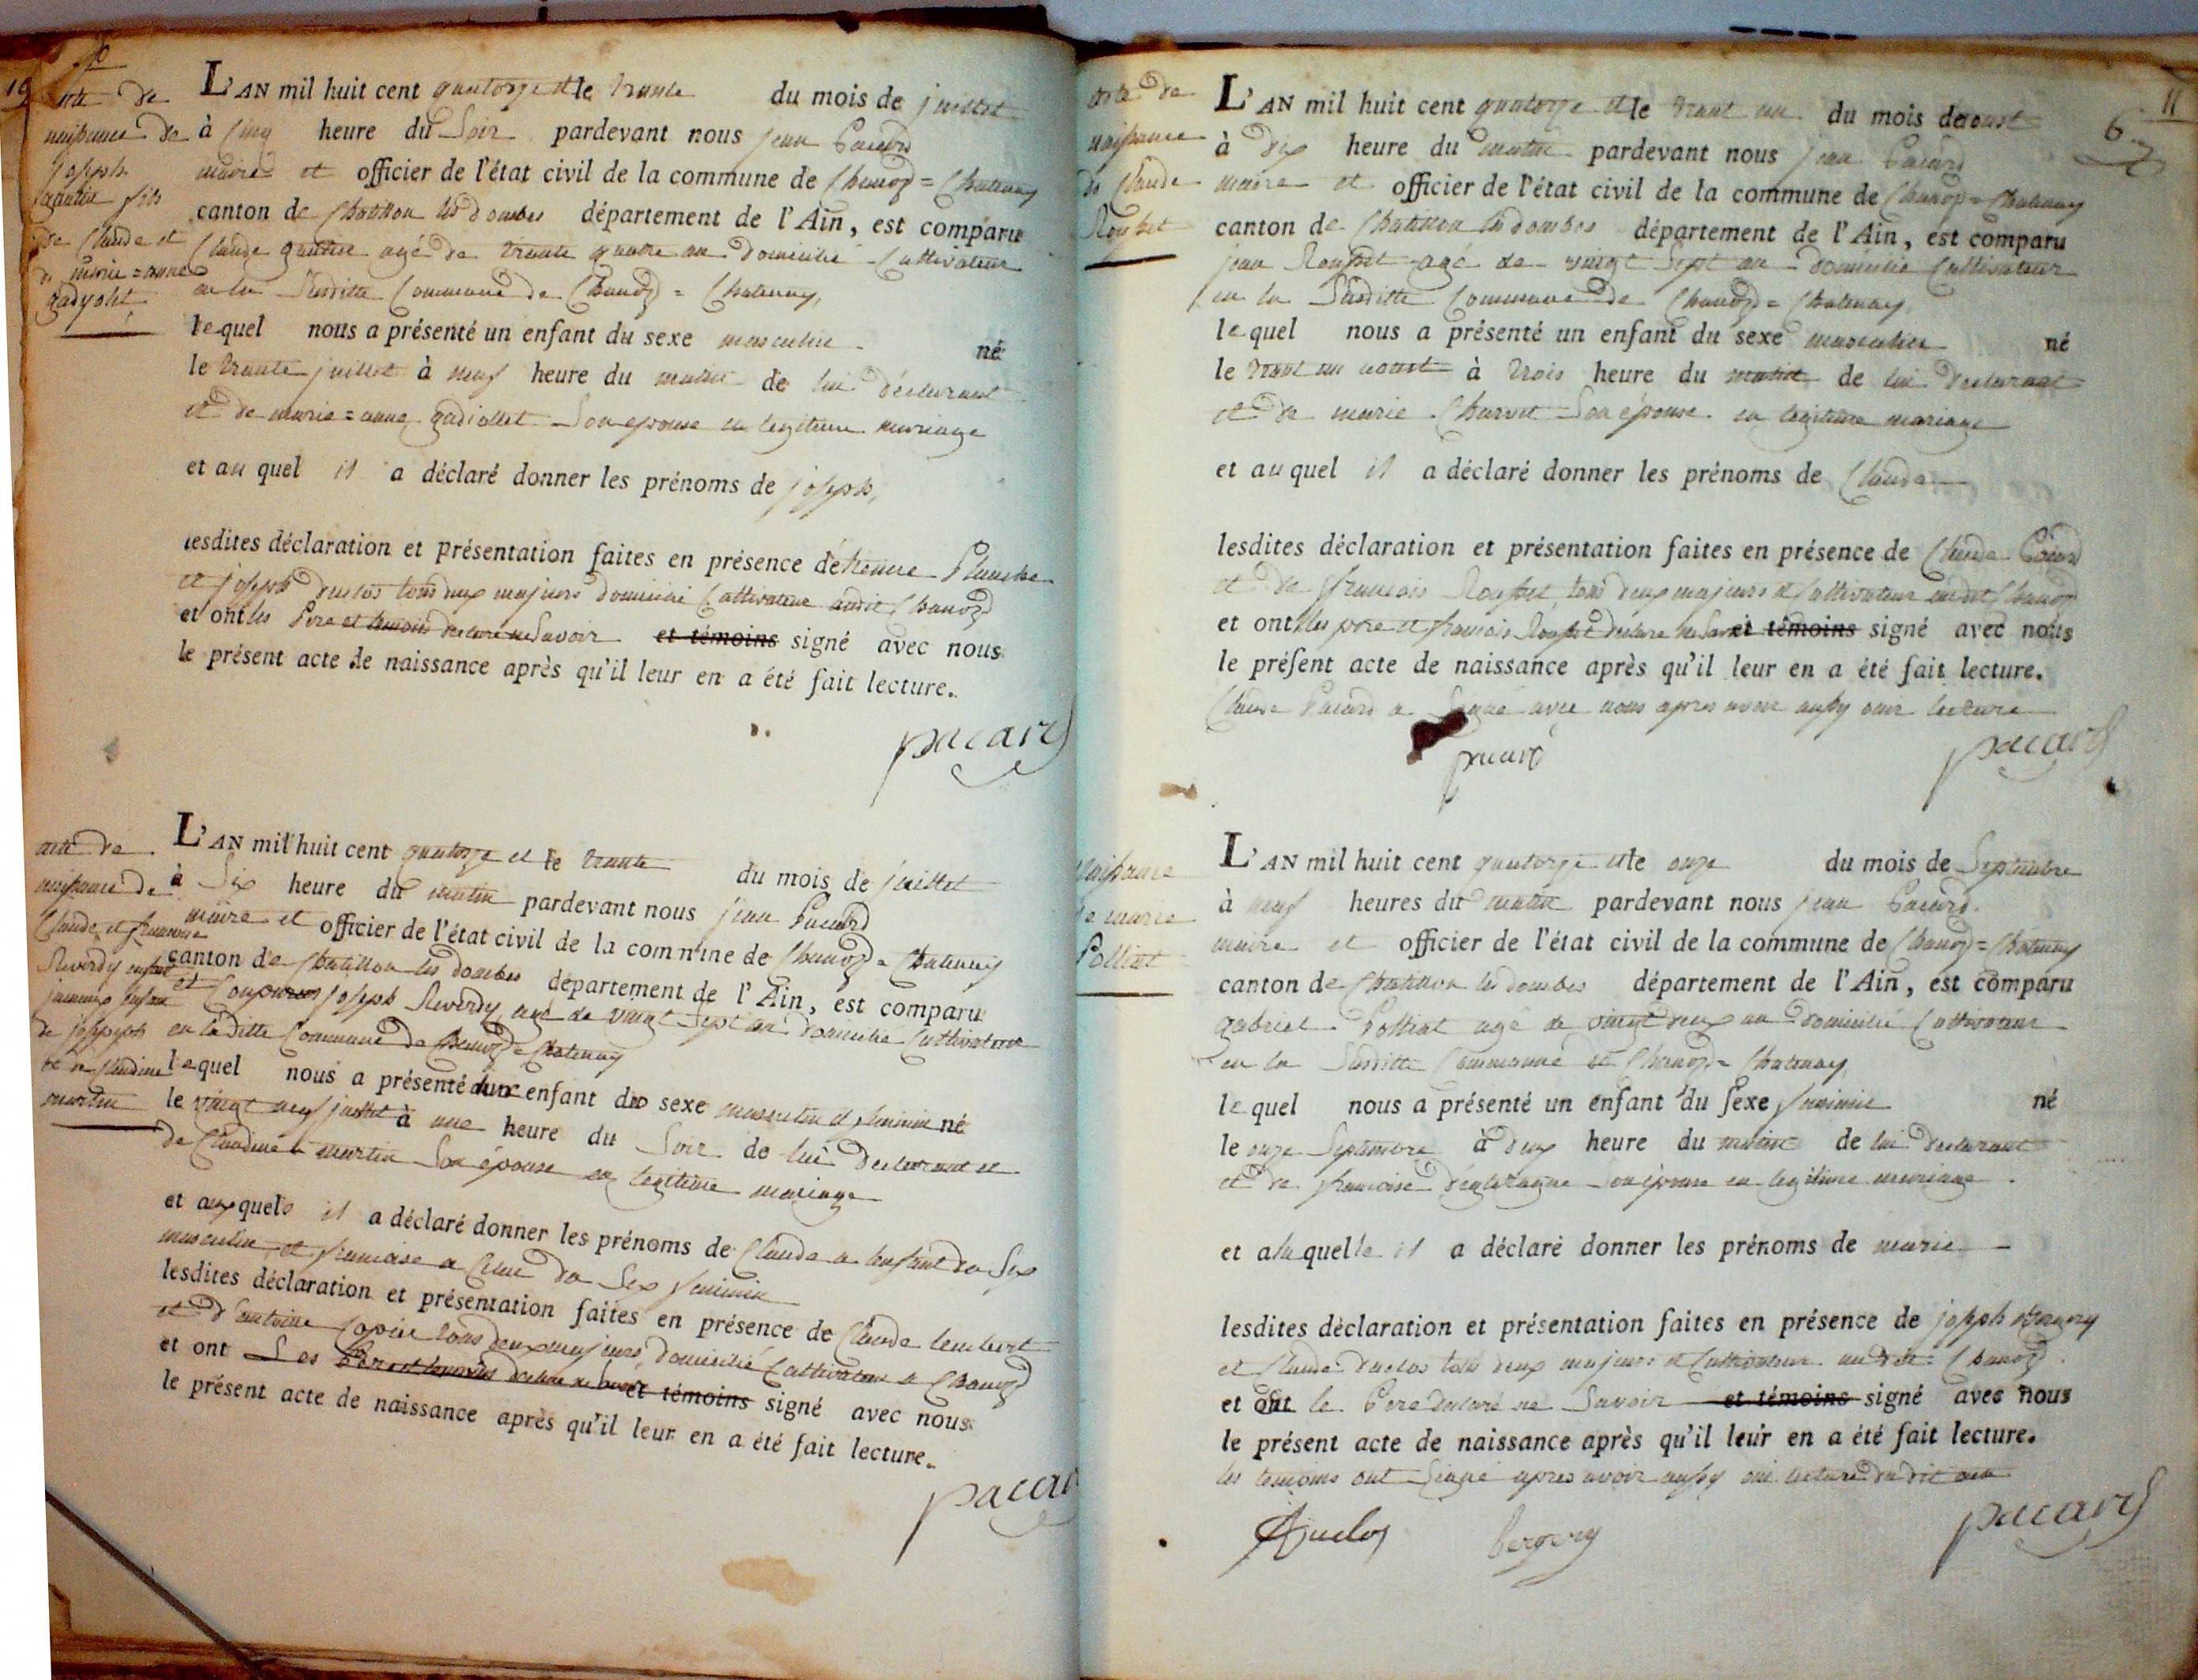 10
acte de
naissance de
joseph
gautier fils
de Claude et
de marie=anne
gadyolet
L'AN mil huit cent quatorze et le trante du mois de juillet
à cinq heure du Soir pardevant nous jean Pacard
maire et officier de l'état civil de la commune de Chanoz=Chatenay
canton de Chatillon les dombes département de l'Ain, est comparu
Claude gautier agé de trante quatre an domicilié Cultivateur
en la Susditte Commune de Chanoz=Chatenay,
lequel nous a présenté un enfant du sexe masculin né
le trante juillet à neuf heure du matin de lui déclarant
et de marie=anne gadiollet Son epouse en legitime mariage
et au quel il a déclaré donner les prénoms de joseph,
lesdites déclaration et présentation faites en présence détienne Planche
et joseph duclos tous deux majeurs domicilié Cultivateur audit Chanoz
et ont les Pere et temoins declaré ne Savoir et témoins signé avec nous
le présent acte de naissance après qu'il leur en a été fait lecture.
pacard
acte de
naissance de
Claude et francoise
Reverdy enfant
jumeaux
de joseph
et de Claudine
martin
L'AN mil huit cent quatorze et le trante du mois de juillet
à Six heure du matin pardevant nous jean Pacard
maire et officier de l'état civil de la commune de Chanoz=Chatenay
canton de Chatillon les dombes département de l'Ain, est comparu
joseph Reverdy agé de vingt Sept an domicilié Cultivateur
en la ditte Commune de Chanoz=Chatenay
lequel nous a présenté deux enfant du sexe masculin et feminin né
le vingt neuf juillet à une heure du Soir de lui declarant et
de Claudine martin Son épouse en legitime mariage
et aux quels il a déclaré donner les prénoms de Claude a lenfant du Sex
masculin et francoise a Celui du Sex feminin
lesdites déclaration et présentation faites en présence de Claude lembert
et d'antoine tous deux majeurs domicilié Cultivateur a Chanoz
et ont Les Pere et temoins declaré ne Savoir et témoins signé avec nous
le présent acte de naissance après qu'il leur en a été fait lecture.
pacard
11
6
acte de
naissance
de Claude
Rousset
L'AN mil huit cent quatorze et le trant un du mois de aoust
à dix heure du matin pardevant nous jean Pacard
maire et officier de l'état civil de la commune de Chanoz=Chatenay
canton de Chatillon les dombes département de l'Ain, est comparu
jean Rousset agé de vingt Sept an domicilié Cultivateur
en la Susditte Commune de Chanoz=Chatenay,
lequel nous a présenté un enfant du sexe masculin né
le trant un aoust à trois heure du matin de lui declarant
et de marie Charvet Son épouse en legitime mariage
et au quel il a déclaré donner les prénoms de Claude
lesdites déclaration et présentation faites en présence de Claude Pacard
et de francois Rousset tous deux majeurs et Cultivateur audit Chanoz
et ont les pere et francois Rousset declaré ne Savoir et témoins signé avec nous
le présent acte de naissance après qu'il leur en a été fait lecture.
Claude Pacard a Signé avec nous apres avoir aussy oui lecture
pacard
pacard
naissance
de marie
Polliat
L'AN mil huit cent quatorze et le onze du mois de Septembre
à neuf heures du matin pardevant nous jean Pacard
maire et officier de l'état civil de la commune de Chanoz=Chatenay
canton de Chatillon les dombes département de l'Ain, est comparu
gabriel Polliat agé de vingt deux an domicilié Cultivateur
en la Susditte Commune de Chanoz=Chatenay
lequel nous a présenté un enfant du sexe feminin né
le onze Septembre à deux heure du matin de lui declarant
et de francoise Son épouse en legitime mariage
et a la quelle il a déclaré donner les prénoms de marie
lesdites déclaration et présentation faites en présence de joseph
et Claude duclos tous deux majeurs et Cultivateur audit Chanoz
et ont le Pere declaré ne Savoir et témoins signé avec nous
le présent acte de naissance après qu'il leur en a été fait lecture.
les temoins ont Signé apres avoir aussy oui lecture du dit acte
Duclos
pacard